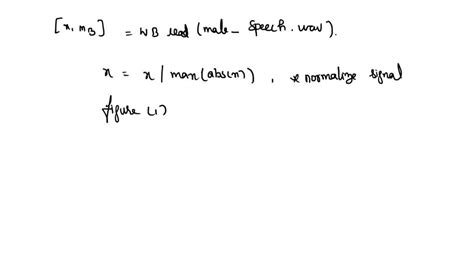 [x, m_B] = WB read (male_ speech.wav).
x = x | max(abs(x)) , % normalize signal
figure (1)